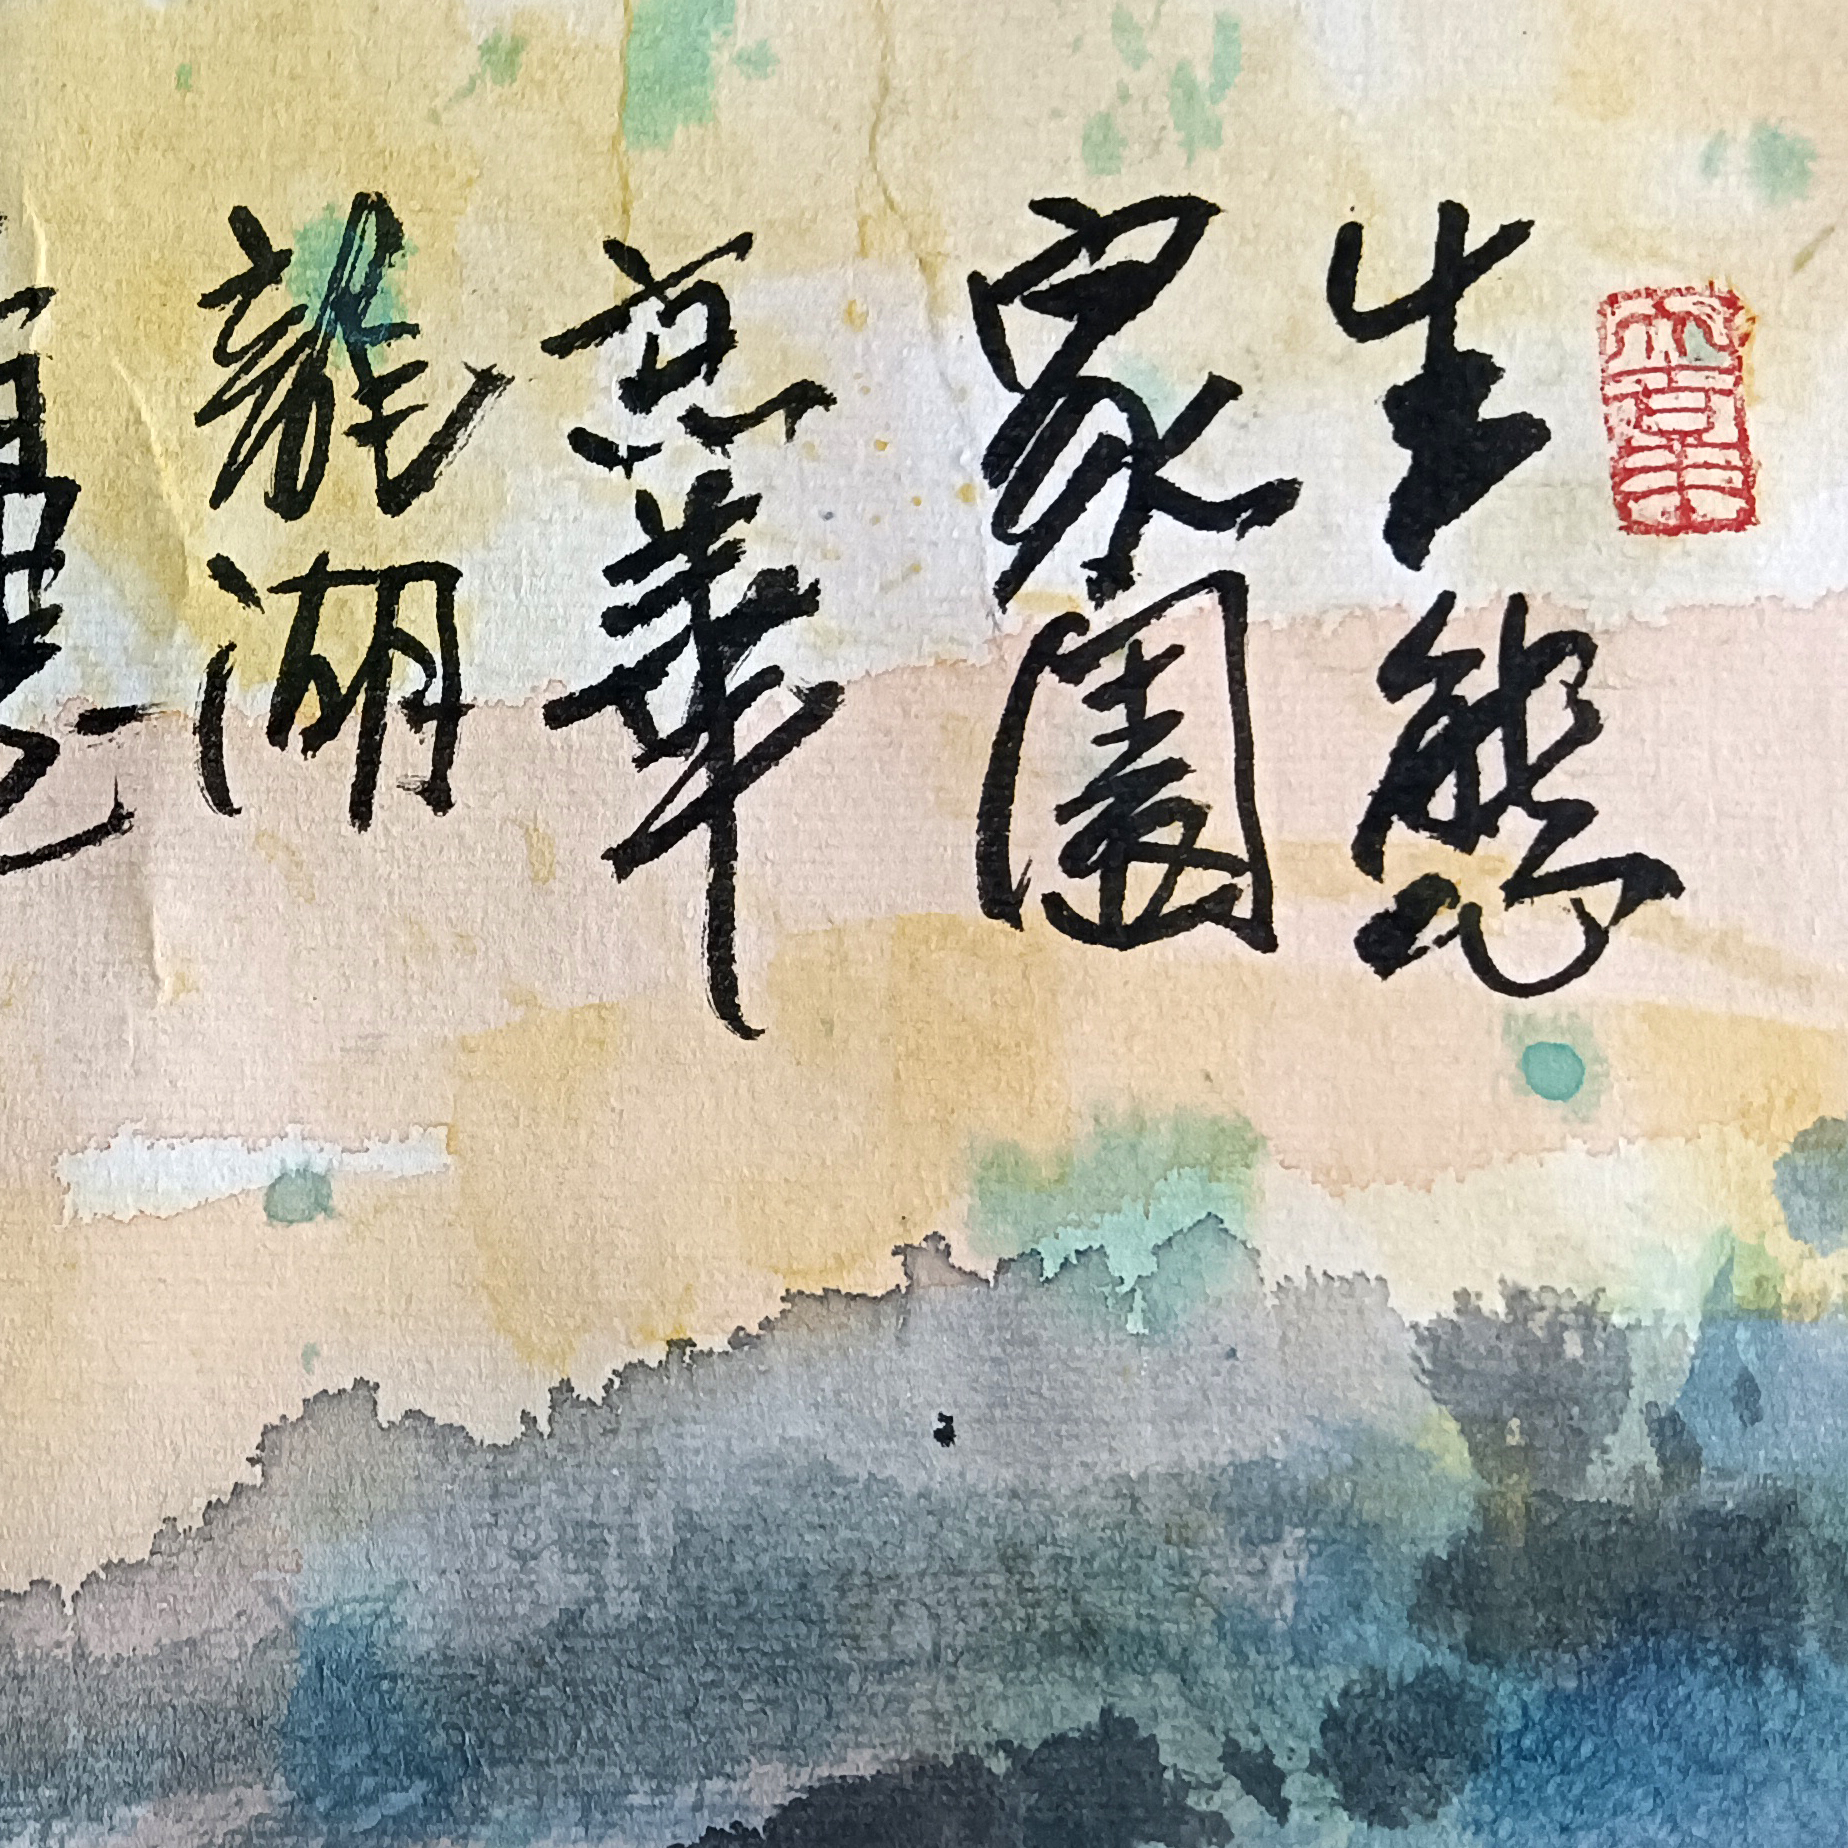 生態
家園
京華
龍湖